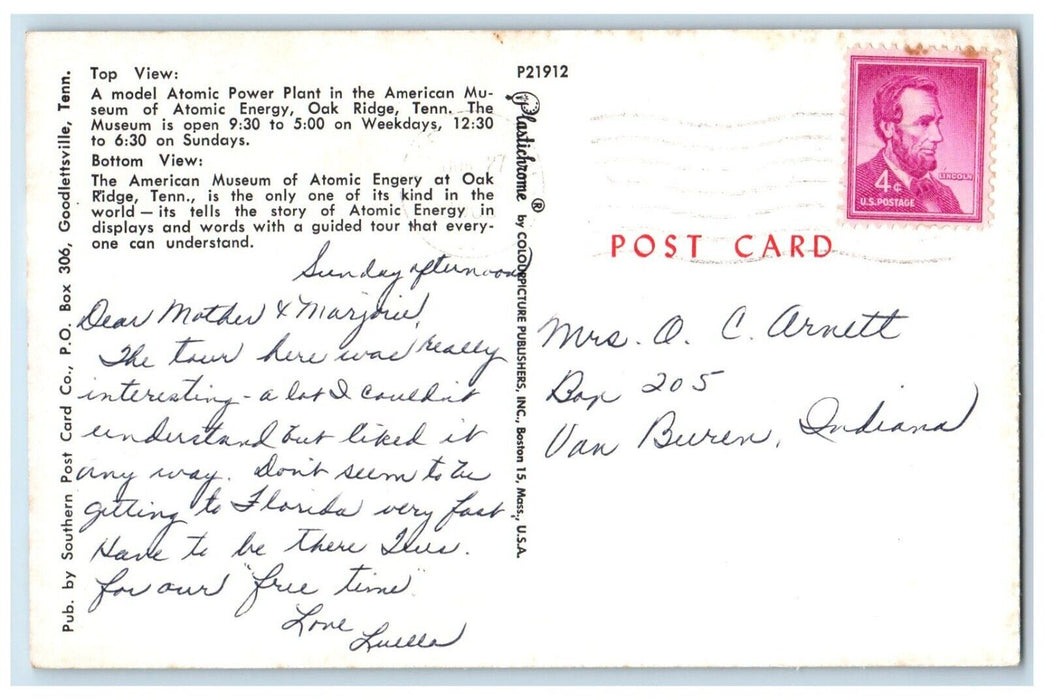 Top View:
A model Atomic Power Plant in the American Mu-
seum of Atomic Energy, Oak Ridge, Tenn. The
Museum is open 9:30 to 5:00 on Weekdays, 12:30
to 6:30 on Sundays.
Bottom View:
The American Museum of Atomic Engery at Oak
Ridge, Tenn., is the only one of its kind in the
world — its tells the story of Atomic Energy in
displays and words with a guided tour that every-
one can understand.
Sunday afternoon
Dear Mother & Marjorie,
The tour here was really
interesting - a lot I couldn't
understand but liked it
any way. Don't seem to be
getting to Florida very fast
Have to be there Tues.
for our "free time"
Love
Luella
Pub. by Southern Post Card Co., P.O. Box 306, Goodlettsville, Tenn.
P21912
Plastichrome ® by COLOURPICTURE PUBLISHERS, INC., Boston 15, Mass., U.S.A.
4¢
LINCOLN
U.S. POSTAGE
POST CARD
Mrs. O. C. Arnett
Box 205
Van Buren, Indiana